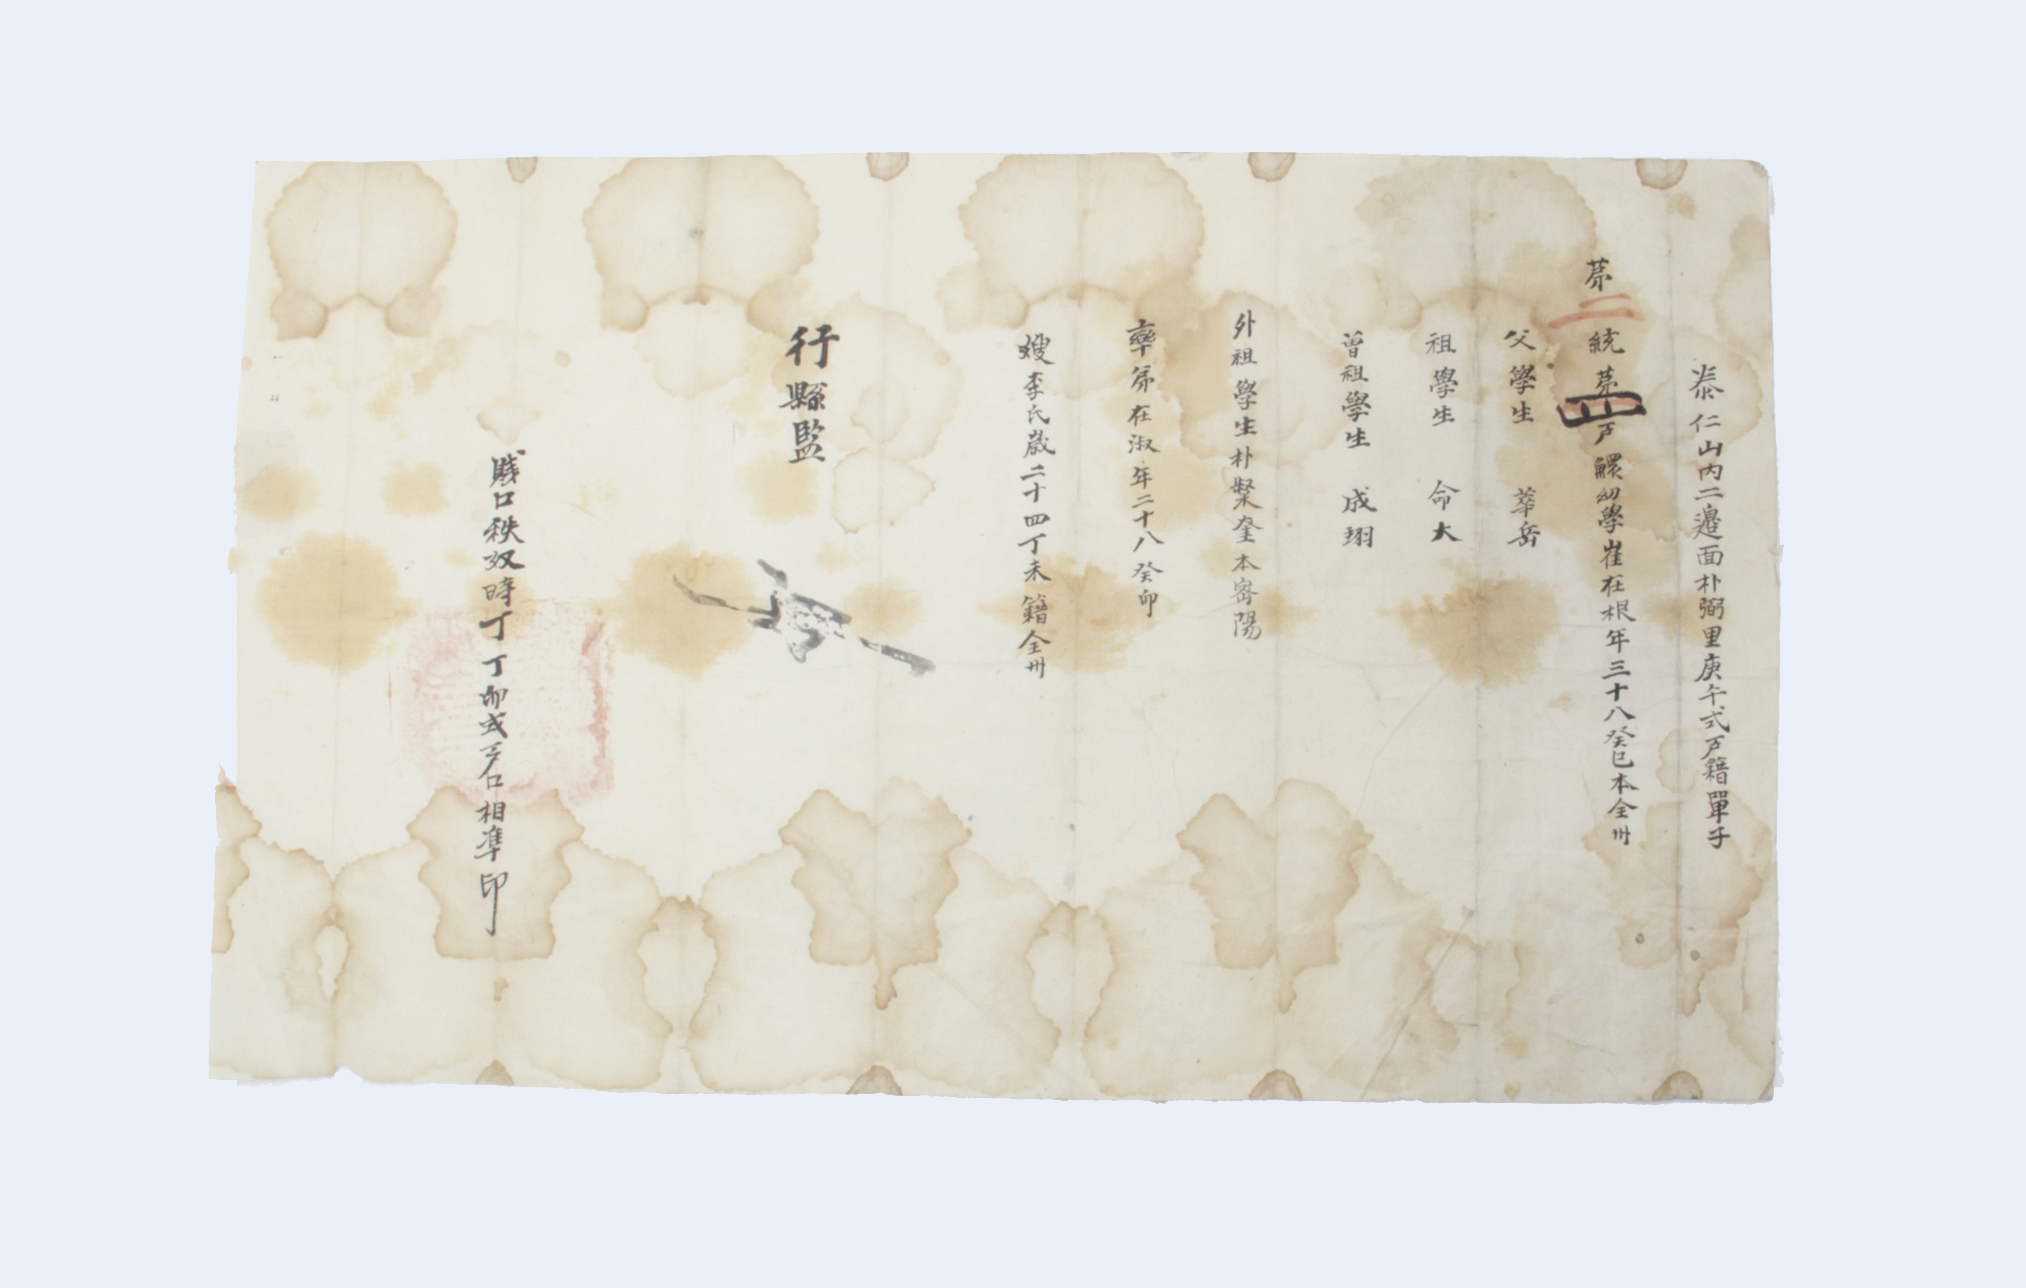 泰仁山內二邊面朴弼里庚午式戶籍單子
第二統第四戶鰥幼學崔在根年三十八癸巳本全州
父學生 華岳
祖學生 命大
曾祖學生 成珝
外祖學生朴燦奎本密陽
率弟在淑年二十八癸卯
嫂李氏歲二十四丁未籍全州
行縣監
賤口秩奴時丁丁卯式戶口相準印